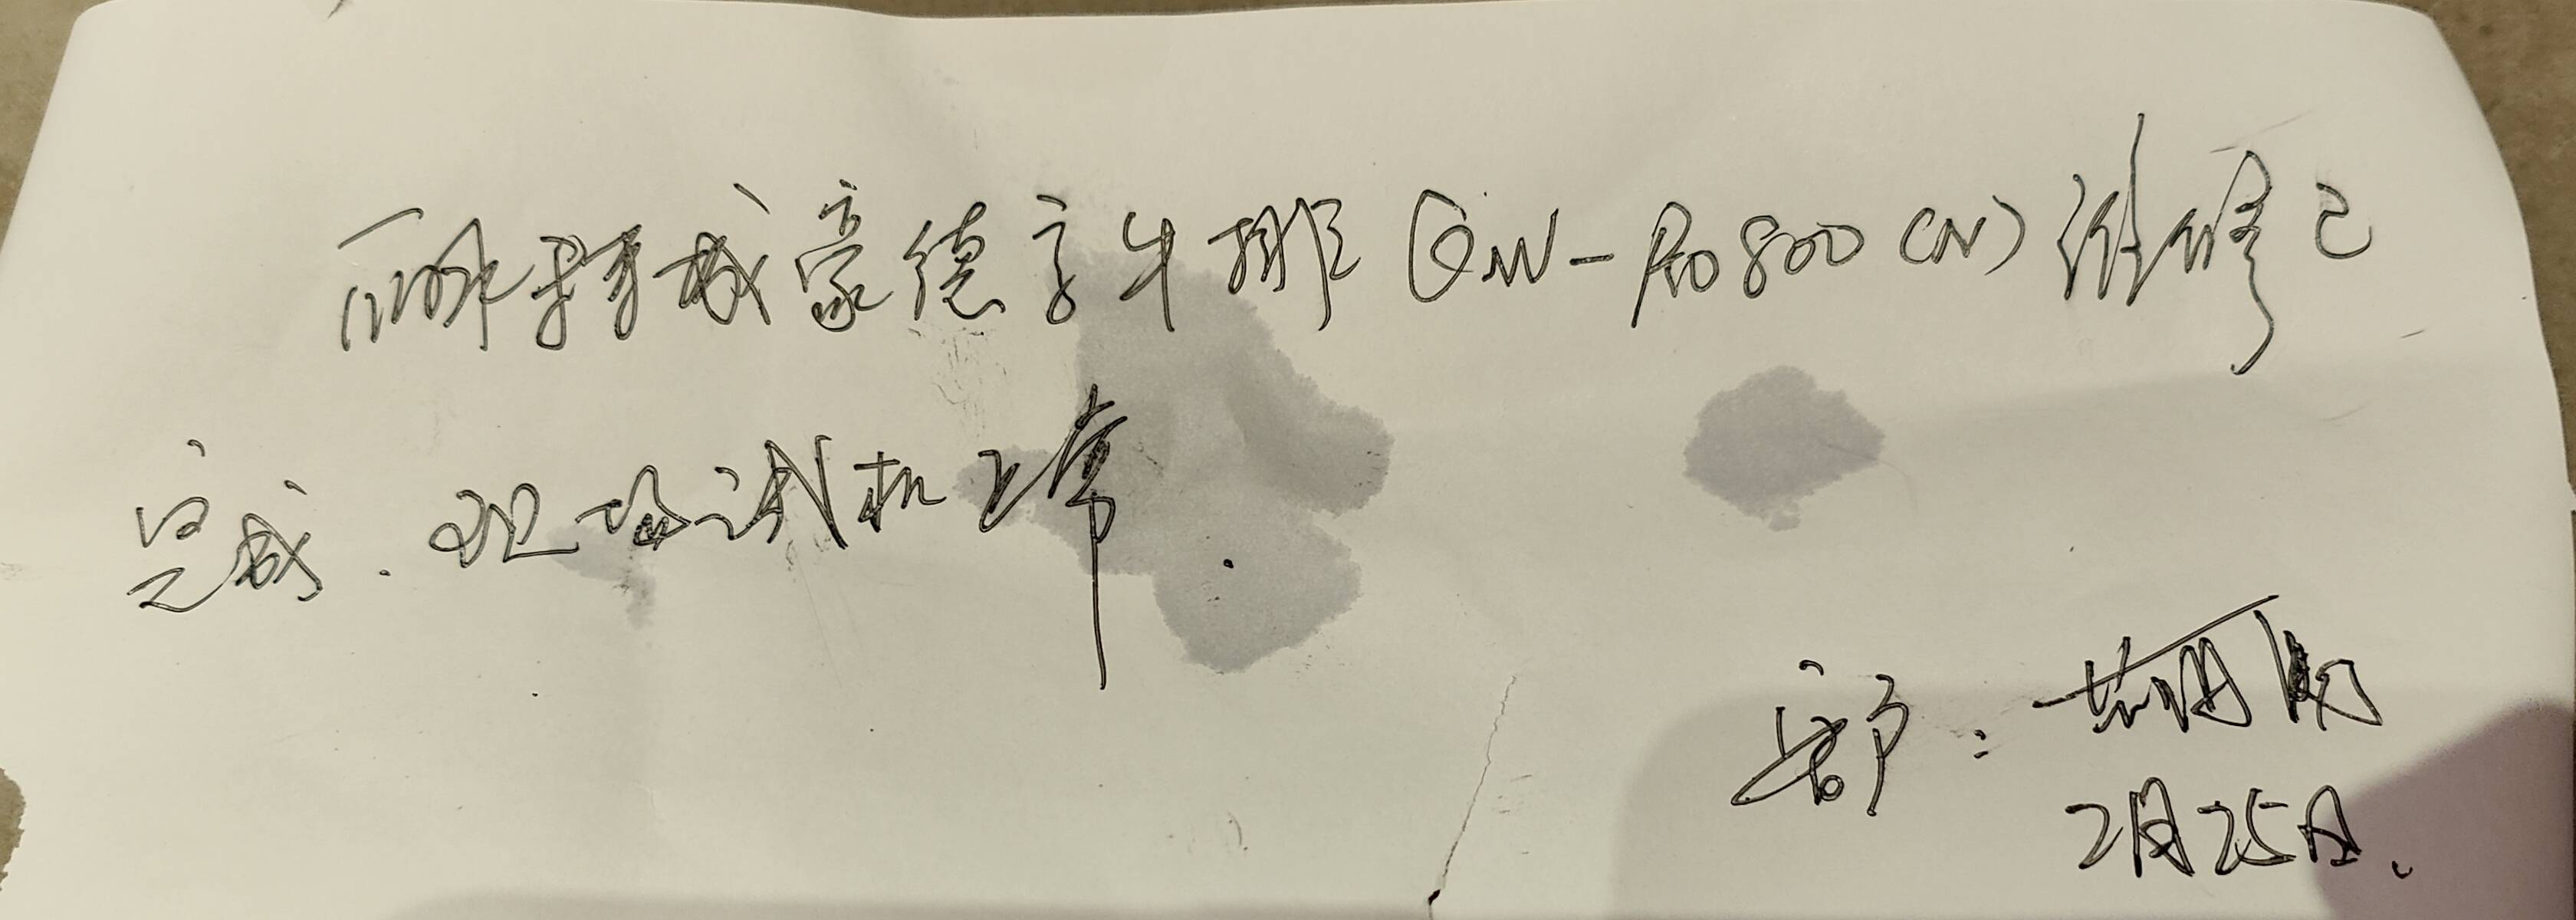 丽影城豪德亨牛排(QW-R0800CN)维修已
完成.现场试机正常.
客户:
2月25日.